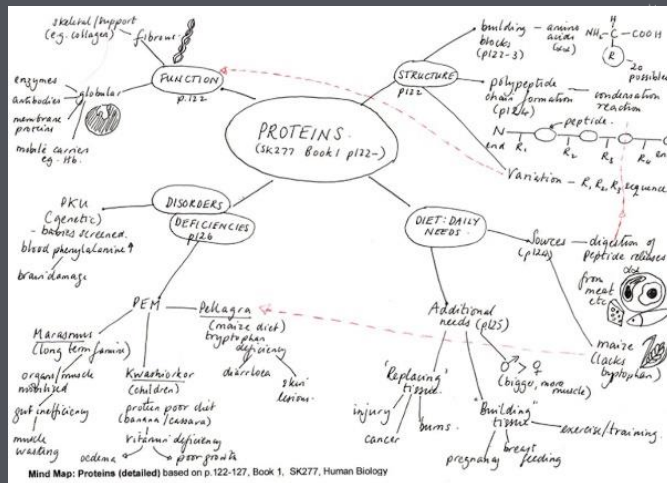 skeletal/support
(e.g. collagen)
fibrous
FUNCTION
p.122
enzymes
antibodies
membrane
proteins
globular
mobile carriers
eg. Hb.
PROTEINS.
(SK277 Book 1 p122-)
STRUCTURE
p122
building
blocks
(p122-3)
amino
acids
(αα)
H
NH₂ - C - COOH
R
20
possible
polypeptide
chain formation
(p124)
condensation
reaction
peptide.
N
end
R₁
R₂
R₃
R₄
Variation - R₁ R₂ R₃ sequence
DISORDERS
DEFICIENCIES
p126
PKU
(genetic)
- babies screened.
blood phenylalanine ↑
brain damage
PEM
Marasmus
(long term famine)
organs/muscle
mobilised
gut inefficiency
muscle
wasting
Kwashiorkor
(children)
protein poor diet
(banana/cassava)
vitamin deficiency
oedema
poor growth
Pellagra
(maize diet)
tryptophan
deficiency
diarrhoea
skin
lesions.
DIET: DAILY
NEEDS.
Sources
(p124)
digestion of
peptide releases
αα
from
meat
etc
maize
(lacks
tryptophan)
Additional
needs (p125)
♂ > ♀
(bigger, more
muscle)
"Replacing"
tissue
injury
cancer
burns.
"Building"
tissue
pregnancy
breast
feeding
exercise/training.
Mind Map: Proteins (detailed) based on p.122-127, Book 1, SK277, Human Biology